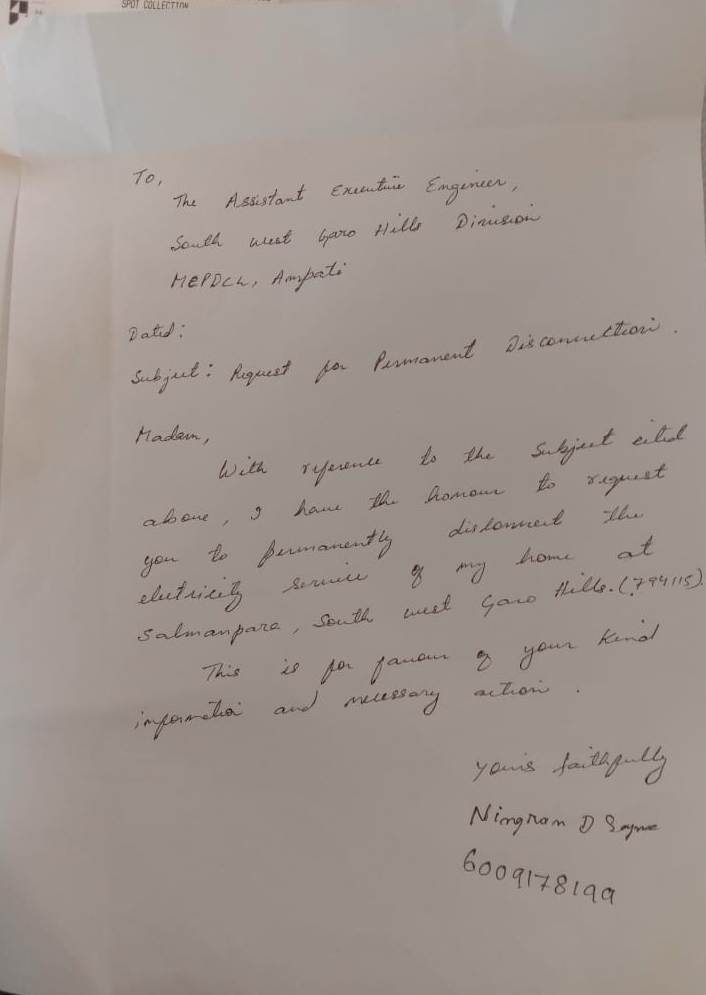 SPOT COLLECTION
To,
The Assistant Executive Engineer,
South West Garo Hills Division
MePDCL, Ampati
Dated:
Subject: Request for Permanent Disconnection.
Madam,
With reference to the subject cited
above, I have the honour to request
you to permanently disconnect the
electricity service of my home at
Salmanpara, South West Garo Hills. (794115)
This is for favour of your kind
information and necessary action.
Yours faithfully
D
6009178199